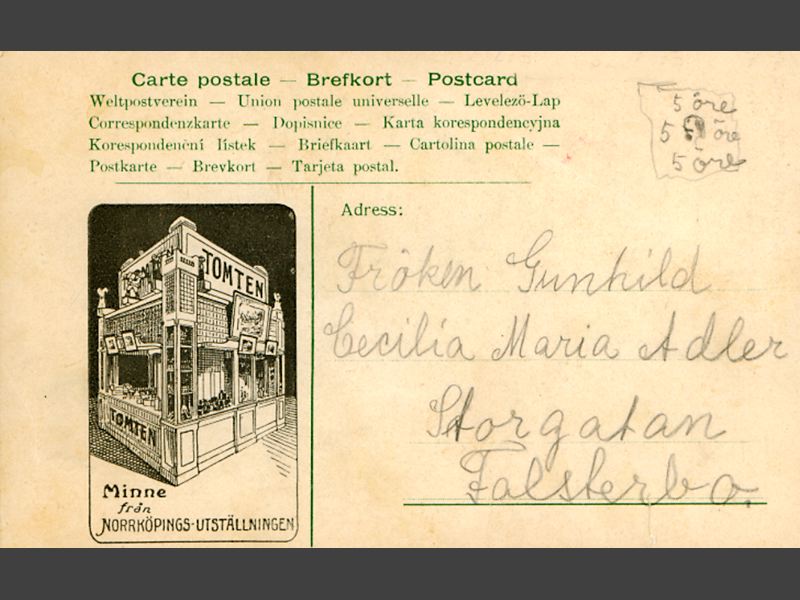 Carte postale — Brefkort — Postcard
Weltpostverein — Union postale universelle — Levelezö-Lap
Correspondenzkarte — Dopisnice — Karta korespondencyjna
Korespondenční lístek — Briefkaart — Cartolina postale —
Postkarte — Brevkort — Tarjeta postal.
5 öre
5 öre
5 öre
TOMTEN
TOMTEN
Minne
från
NORRKÖPINGS-UTSTÄLLNINGEN
Adress:
Fröken Gunhild
Cecilia Maria Adler
Storgatan
Falsterbo.